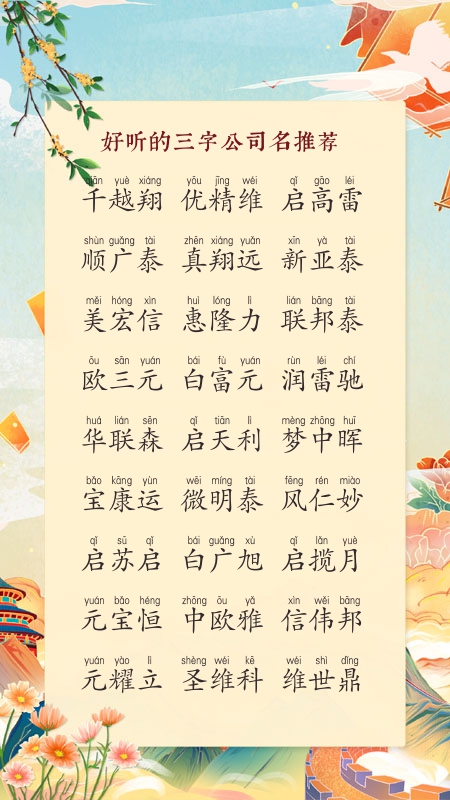 好听的三字公司名推荐
qiān yuè xiáng yōu jīng wéi qǐ gāo léi
千越翔 优精维 启高雷
shùn guǎng tài zhēn xiáng yuǎn xīn yà tài
顺广泰 真翔远 新亚泰
měi hóng xìn huì lóng lì lián bāng tài
美宏信 惠隆力 联邦泰
ōu sān yuán bái fù yuán rùn léi chí
欧三元 白富元 润雷驰
huá lián sēn qǐ tiān lì mèng zhōng huī
华联森 启天利 梦中晖
bǎo kāng yùn wēi míng tài fēng rén miào
宝康运 微明泰 风仁妙
qǐ sū qǐ bái guǎng xù qǐ lǎn yuè
启苏启 白广旭 启揽月
yuán bǎo héng zhōng ōu yǎ xìn wěi bāng
元宝恒 中欧雅 信伟邦
yuán yào lì shèng wéi kē wéi shì dǐng
元耀立 圣维科 维世鼎